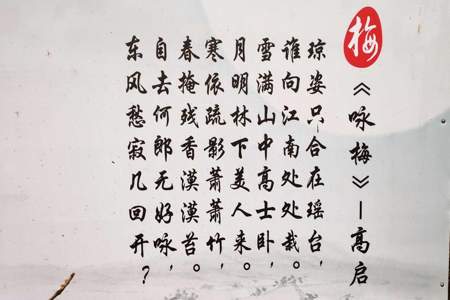 梅
《咏梅》—高启
琼姿只合在瑶台，
谁向江南处处栽。
雪满山中高士卧，
月明林下美人来。
寒依疏影萧萧竹，
春掩残香漠漠苔。
自去何郎无好咏，
东风愁寂几回开？